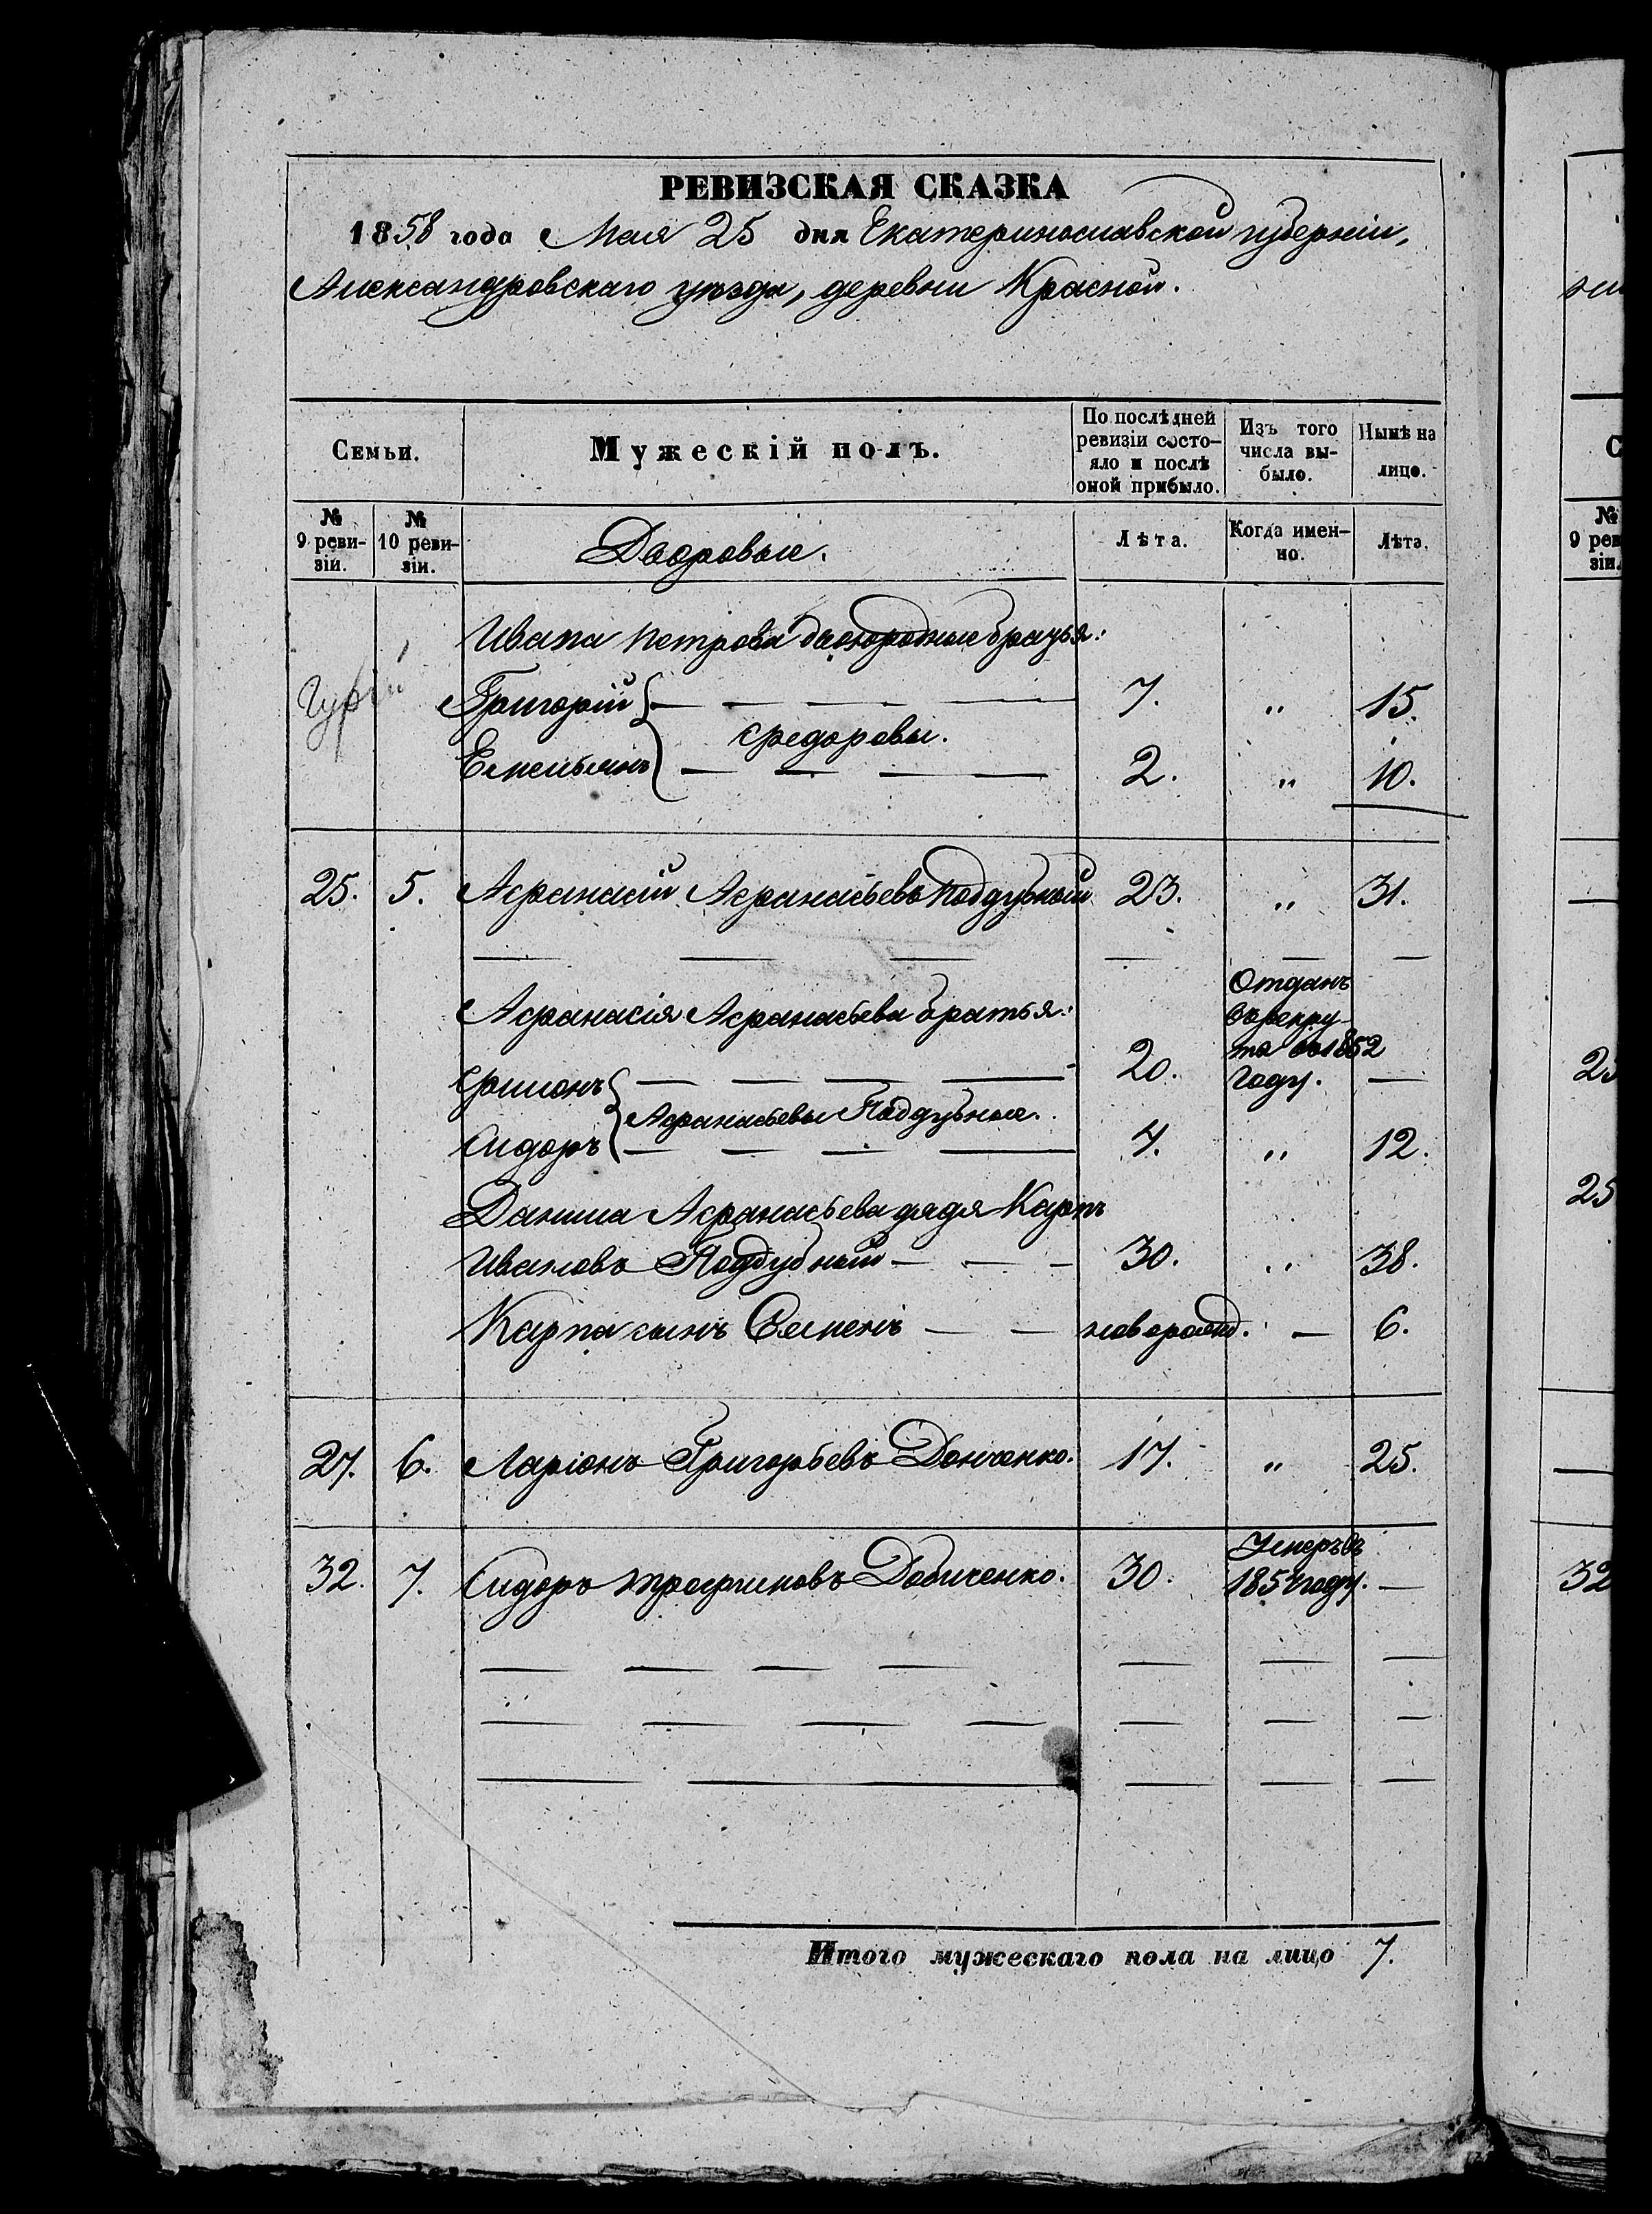 РЕВИЗСКАЯ СКАЗКА
1858 года Мая 25 дня Екатеринославской губерніи,
Александровскаго уѣзда, деревни Красной.
Семьи.
Мужескій полъ.
По послѣдней ревизіи состо-
яло и послѣ
оной прибыло.
Изъ того
числа вы-
было.
Нынѣ на
лицо.
№ 9 реви-
зіи.
№ 10 реви-
зіи.
Дворовые.
Лѣта.
Когда имен-
но.
Лѣта.
Ивана Петрова двоюродные братья:
Григорій — — — — 7. „ 15.
Федоровы.
Емельянъ — — — — 2. „ 10.
25. 5. Афанасій Афанасьевъ Поддубный 23. „ 31.
— — — — — —
Афанасія Афанасьева братья:
Отданъ
въ рекру-
та въ 1852
году.
Филонъ — — — — 20. —
Афанасьевы Поддубные.
Сидоръ — — — — 4. „ 12.
Данила Афанасьева дядя Карпъ
Ивановъ Поддубный — — — 30. „ 38.
Карпа сынъ Семенъ — — новорожд. — 6.
27. 6. Ларіонъ Григорьевъ Донченко. 17. „ 25.
Умеръ въ
32. 7. Сидоръ Трофимовъ Добиченко. 30. 1857 году. —
— — — — — — —
— — — — — — —
— — — — —
Итого мужескаго пола на лицо 7.